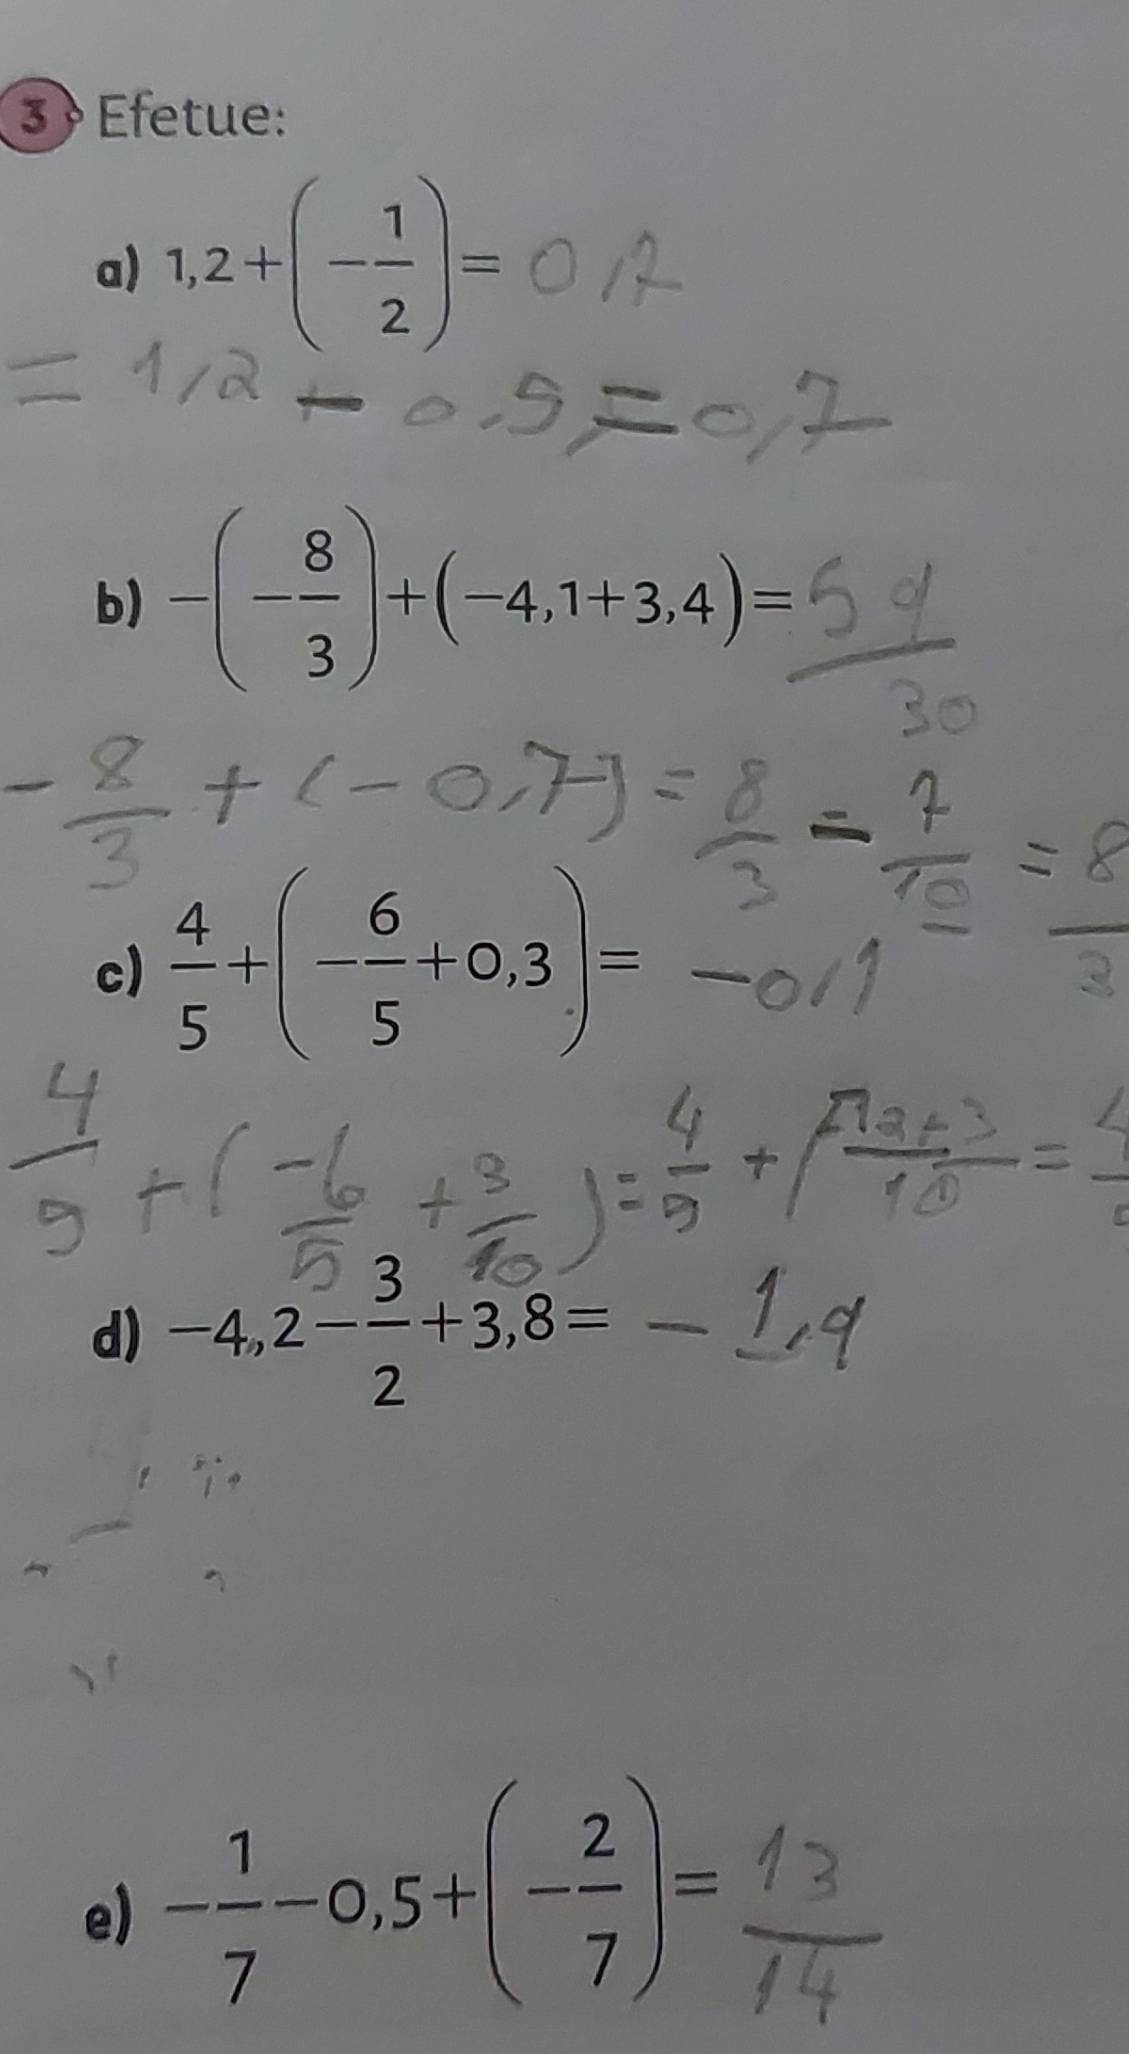 3 Efetue:
a) 1,2 + (-1/2) = 0,7
= 1,2 - 0,5 = 0,7
b) -(-8/3) + (-4,1 + 3,4) = 59/30
-8/3 + (-0,7) = 8/3 - 7/10 = 8/3
c) 4/5 + (-6/5 + 0,3) = -0,1
4/9 + (-6/5 + 3/10) = 4/9 + (-12+3/10 = 4
d) -4,2 - 3/2 + 3,8 = -1,9
e) -1/7 - 0,5 + (-2/7) = 13/14